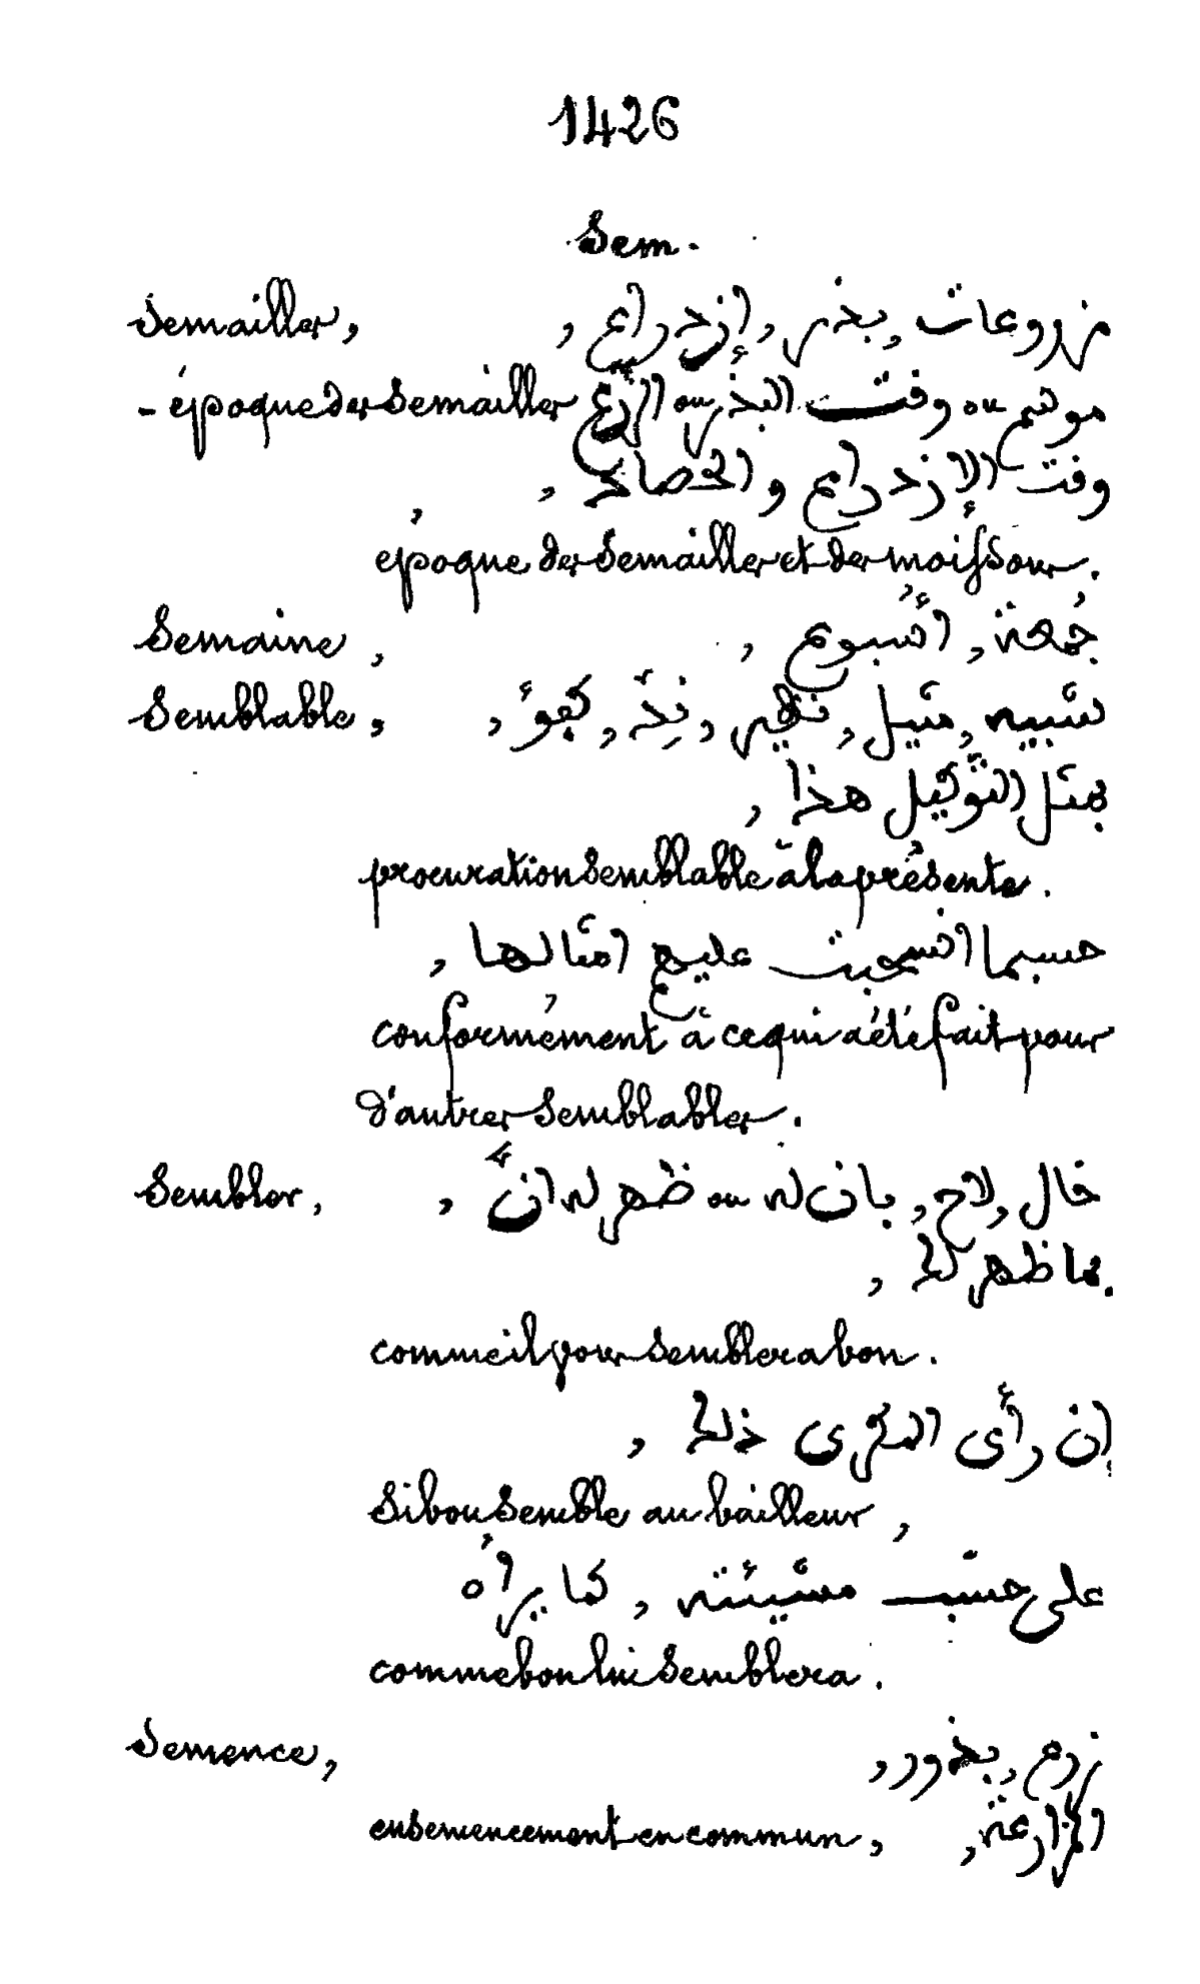 1426
Sem.
Semailles, مزروعات, بذر, إزدراع,
- époque des Semailles موسم ou وقت البذر ou الزّرع
وقت الإزدراع والحصاد,
époque des Semailles et des moissons.
Semaine, جُمعة, أُسبوع,
Semblable, شبيه, مثيل, نظير, نِدّ, كفؤ,
بمثل التّوكيل هذا,
procuration semblable à la présente.
حسبما انسحبت عليه امثالها,
conformément à ce qui a été fait pour
d'autres semblables.
Sembler, خال, لاح, بان له ou ظهر له انّ,
بما ظهر لك,
comme il vous semblera bon.
إن رأى المكرى ذلك,
Si bon semble au bailleur,
على حسَب مشيئته, كما يراه
comme bon lui semblera.
Semence, زرع, بذور,
المزارعة, ensemencement en commun,